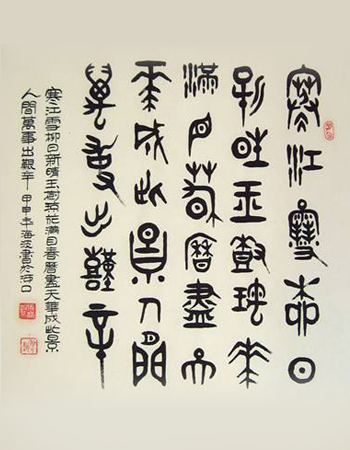 寒江雪柳日
新晴玉樹瓊花
滿目春曆盡天
華成此景人間
萬事出艱辛
寒江雪柳日新晴玉樹瓊花滿目春曆盡天華成此景
人間萬事出艱辛 甲申年海波書於河口